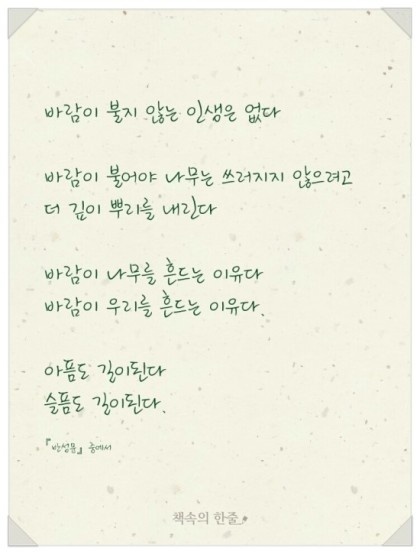 바람이 불지 않는 인생은 없다
바람이 불어야 나무는 쓰러지지 않으려고
더 깊이 뿌리를 내린다
바람이 나무를 흔드는 이유다
바람이 우리를 흔드는 이유다.
아픔도 길이된다
슬픔도 길이된다.
『반성문』 중에서
책속의 한줄